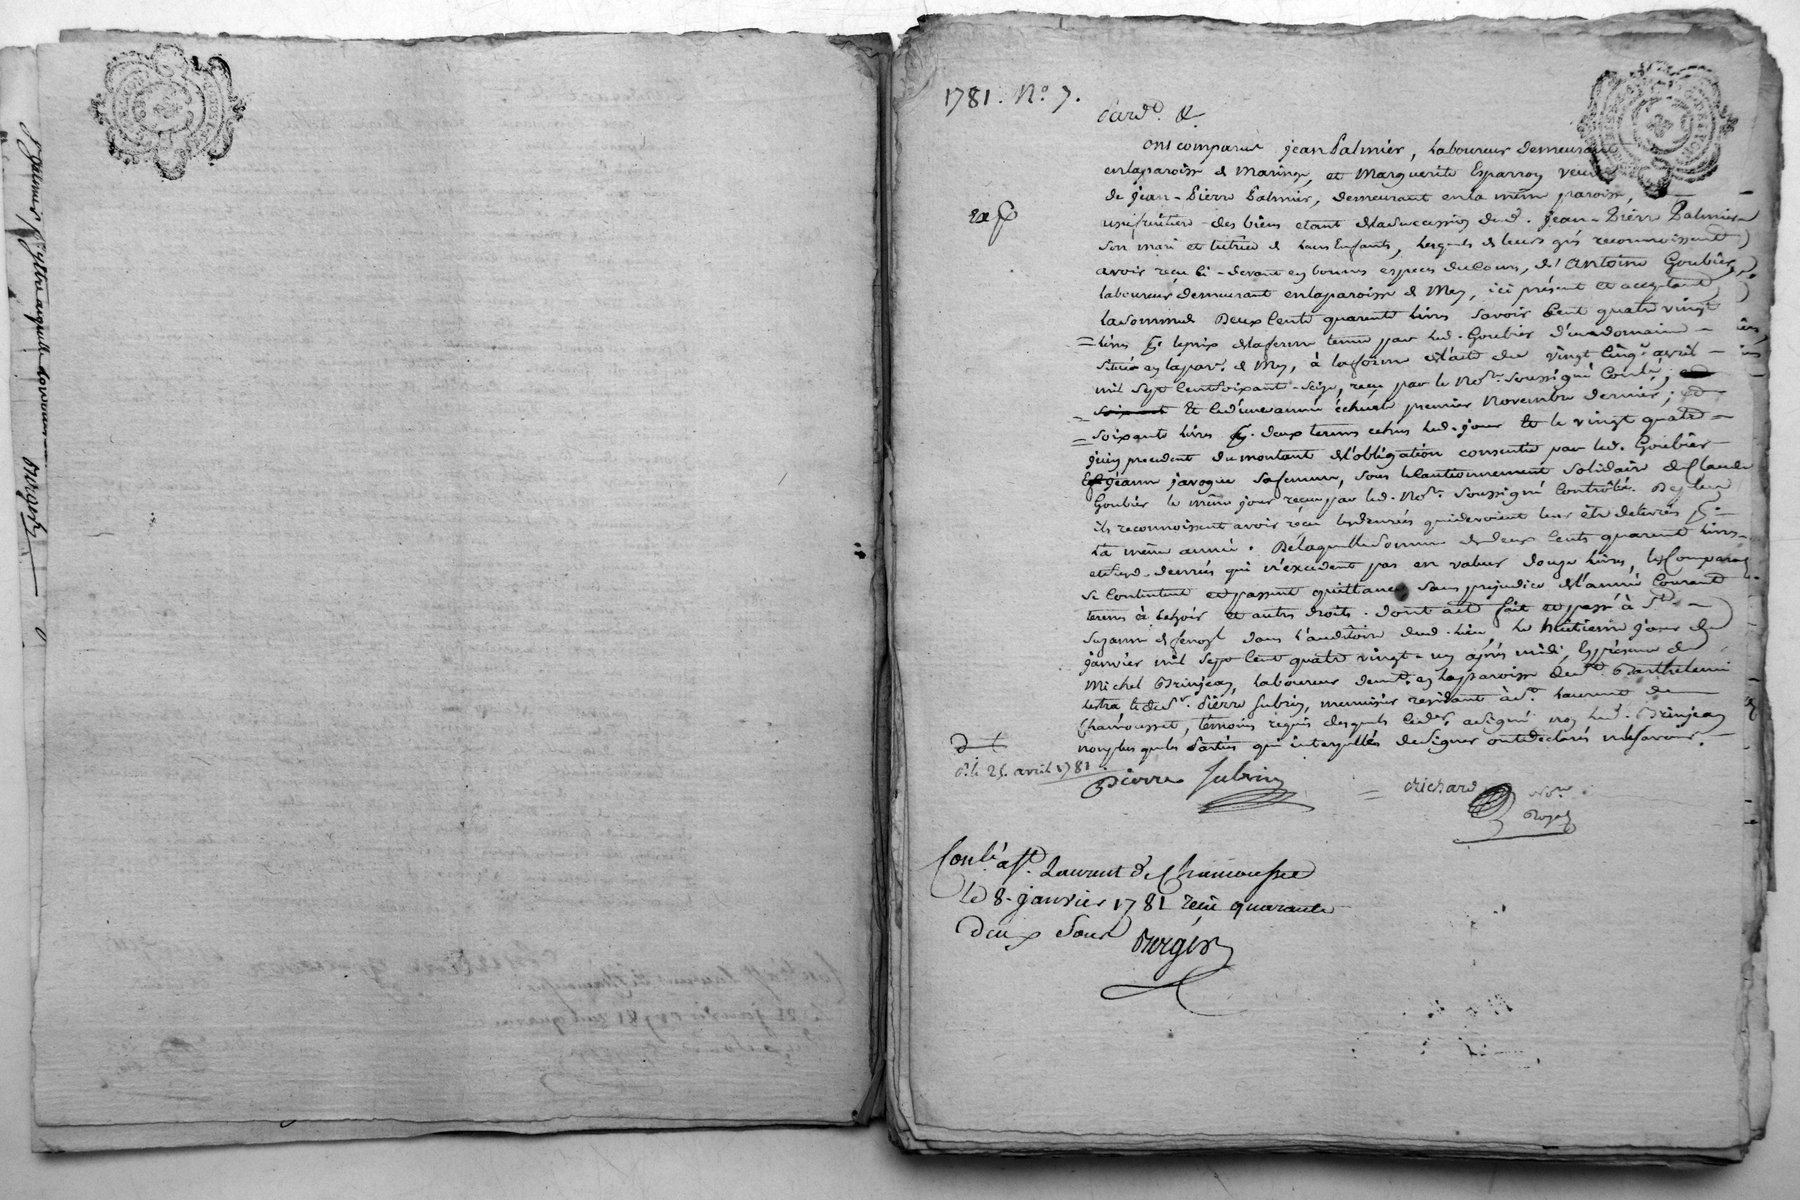 1781. No. 7.
Pardt. &.
Ont comparu jean Palmier, Laboureur demeurant
enlaparoisse de Maringe, et Marguerite Esparron veuve
de jean-Pierre Palmier, demeurant en la même paroisse,
usufruitiere des biens etant delasuccession dud. jean-Pierre Palmier
Son mari et tutrice de Leurs Enfants, Lesquels de leurs grés reconnoissent
exp
avoir recu ci-devant en bonnes especes du Cours, d'Antoine Goubier,
laboureur demeurant enlaparoisse de Mey, ici présent et acceptant
La Somme de Deux Cents quarente Livres Savoir Cent quatre vingt
Livres pr. le prix de la ferme tenue par led. Goubier d'un domaine
Situé en la par. de Mey, à la forme de l'acte du vingt cinq avril
mil Sept Cent Soixante-Seize, recu par le Nore. Soussigné Contlé.,
Et led'une année échue le premier Novembre dernier, et
Soixante Livres pr. deux termes echus led. jour et le vingt quatre
juin precedent du montant de l'obligation consentie par led. Goubier
jeanne javogue Safemme, Sous le Cautionnement Solidaire de Claude
Goubier le même jour recue par led. Nore. Soussigné Contrôlé. De plus
ils reconnoissent avoir recu les denrées qui devoient leur etre delivrées pr.
La même année. De laquelle Somme de deux Cents quarente Livres
et des d. denrées qui n'excedent pas en valeur douze Livres, les Comparants
Se Contentent et passent quittance Sans prejudice de l'année Courante
termes à echoir et autres droits. dont acte fait et passé à Ste.
Suzanne dans L'auditoire dud. Lieu, Le huitieme jour de
janvier mil Sept Cent quatre vingt-un après midi, En présence de
Michel Brinjean, Laboureur demt. en laparoisse de St. Barthelemi
Lestra et de Sr. Pierre Subrin, menuisier residant à St. Laurent de
Chamousset, témoins requis desquels led. Sr. a Signé non led. Brinjean
non plus que les Parties qui interpellés de Signer ont declarés ne le Savoir.
d. le 25. avril 1781.
Pierre Subrin
Richard
Nore
Royal
Conlé. a St. Laurent de Chamousset
Le 8. janvier 1781 recu quarante
Deux Sous
Bergier